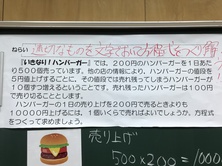 ねらい 適切なものを文字において方程式をつくり解
『いきなり!ハンバーガー』では、200円のハンバーガーを1日あた
り500個売っています。他の店の情報により、ハンバーガーの値段を
5円値上げするごとに、その値段では売れ残ってしまうハンバーガーが
10個ずつ増えるということです。売れ残ったハンバーガーは100円
で売り切ることにします。
ハンバーガーの1日の売り上げを200円で売るときよりも
10000円上げるには、1個いくらで売ればよいでしょうか。方程式
をつくって求めましょう。
売り上げ
500×200=1000